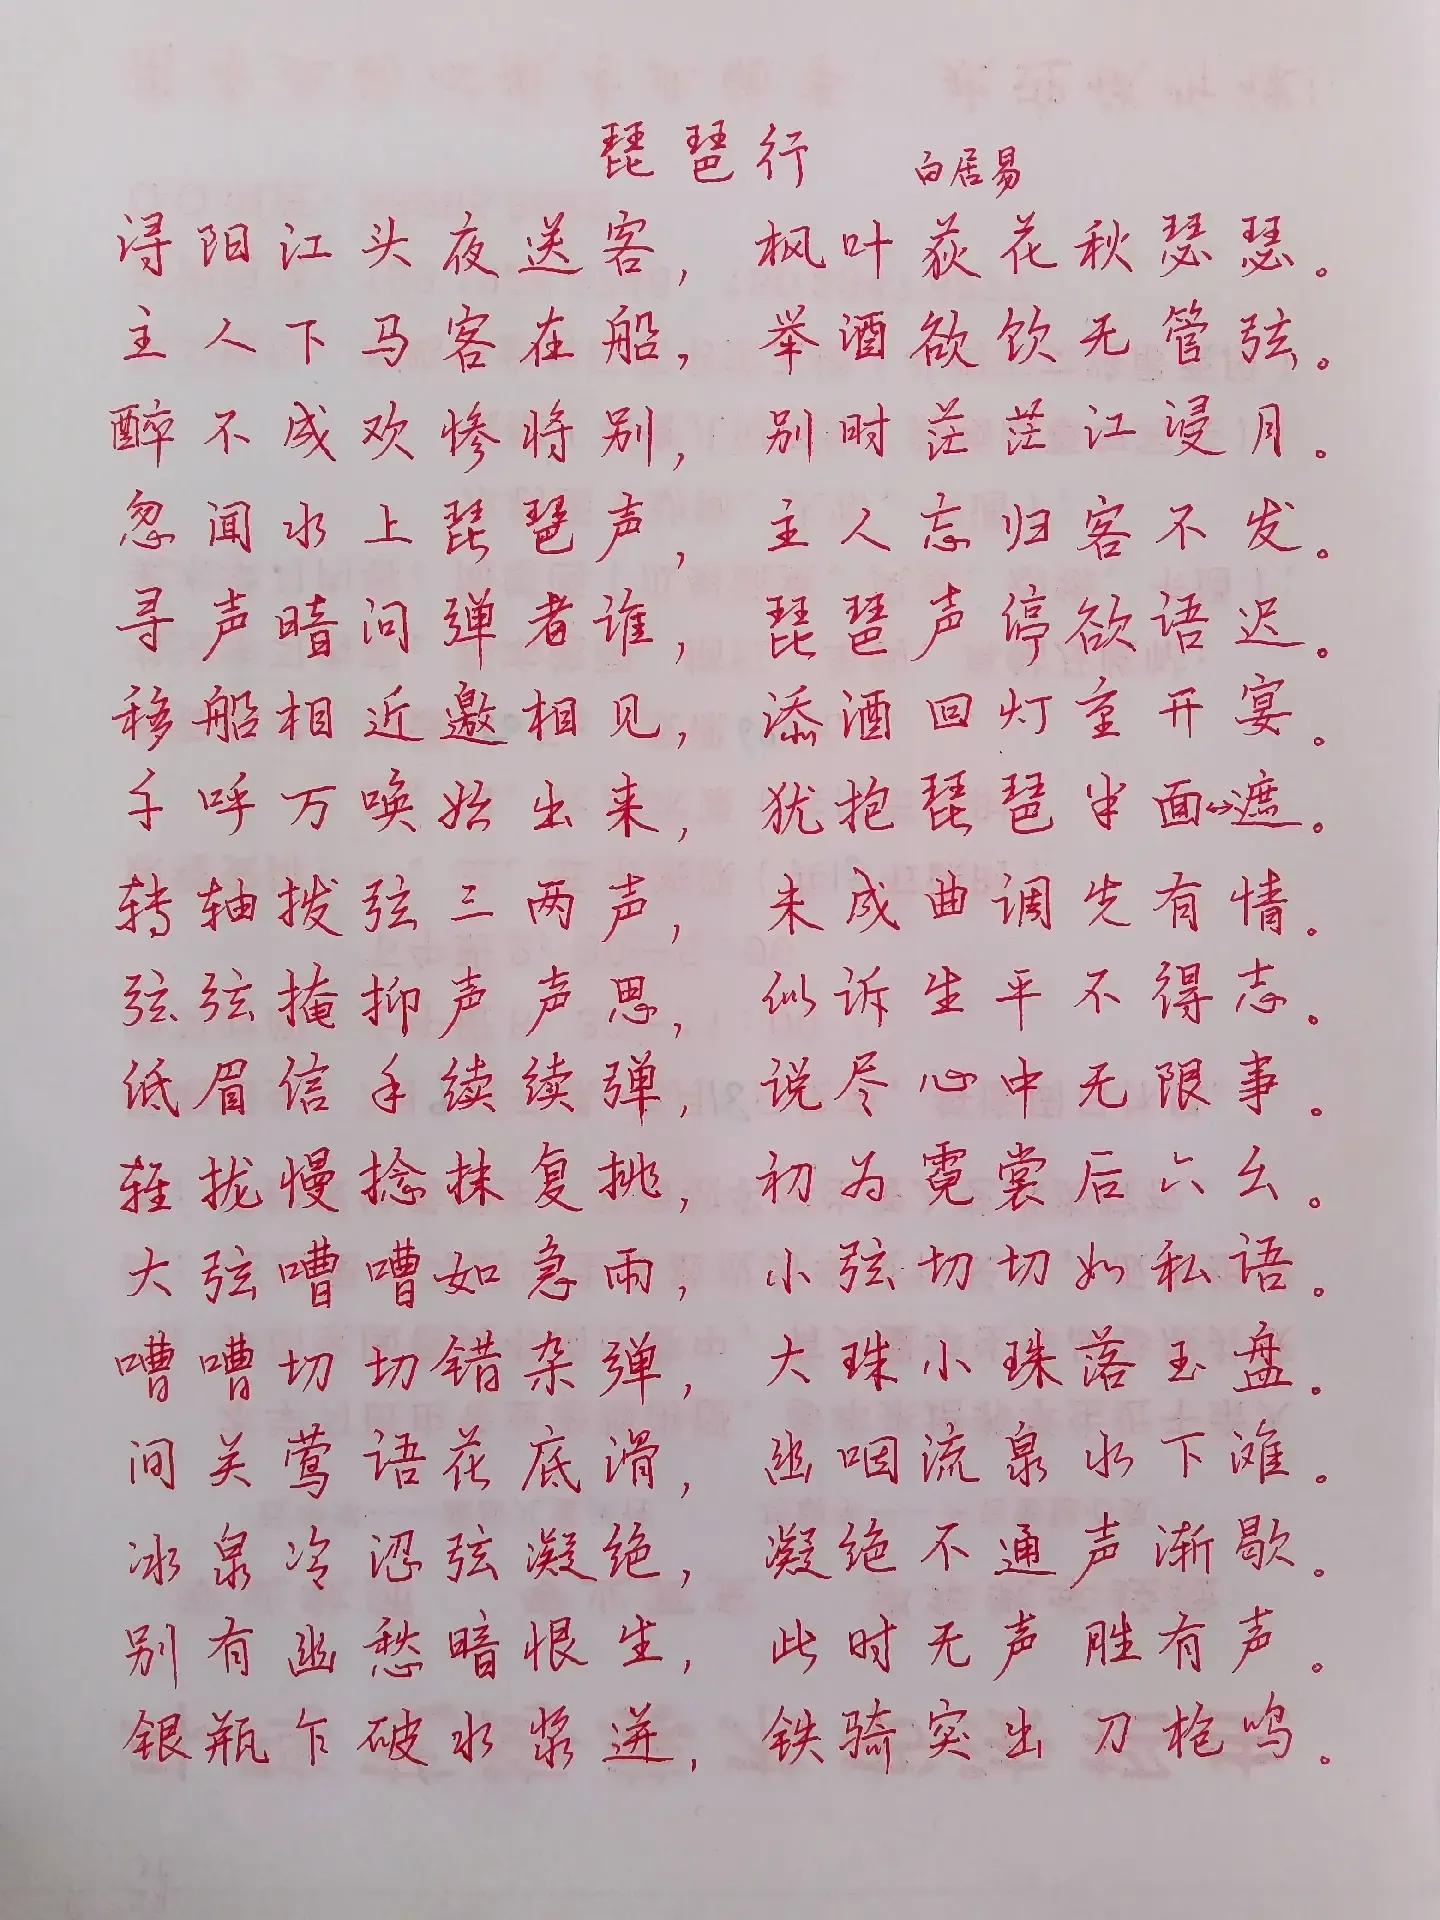 琵琶行 白居易
浔阳江头夜送客，枫叶荻花秋瑟瑟。
主人下马客在船，举酒欲饮无管弦。
醉不成欢惨将别，别时茫茫江浸月。
忽闻水上琵琶声，主人忘归客不发。
寻声暗问弹者谁，琵琶声停欲语迟。
移船相近邀相见，添酒回灯重开宴。
千呼万唤始出来，犹抱琵琶半面遮。
转轴拨弦三两声，未成曲调先有情。
弦弦掩抑声声思，似诉生平不得志。
低眉信手续续弹，说尽心中无限事。
轻拢慢捻抹复挑，初为霓裳后六幺。
大弦嘈嘈如急雨，小弦切切如私语。
嘈嘈切切错杂弹，大珠小珠落玉盘。
间关莺语花底滑，幽咽流泉水下滩。
冰泉冷涩弦凝绝，凝绝不通声渐歇。
别有幽愁暗恨生，此时无声胜有声。
银瓶乍破水浆迸，铁骑突出刀枪鸣。